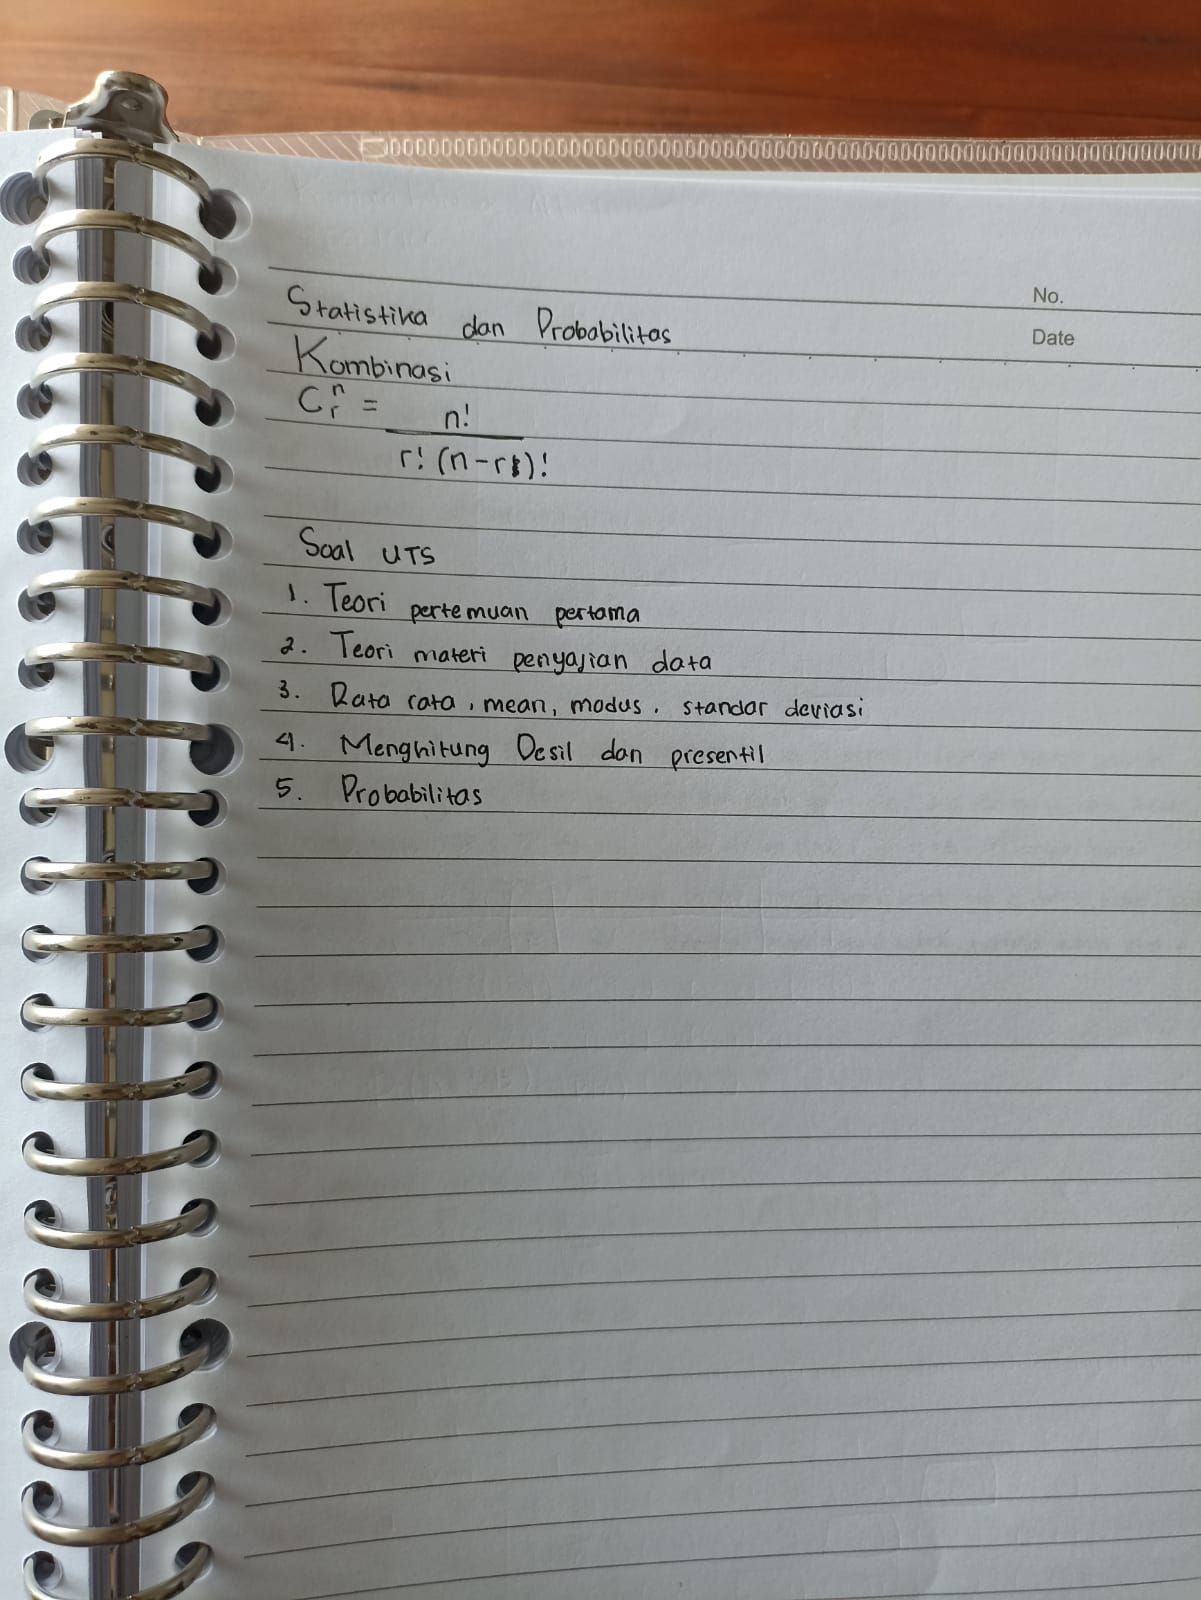 No.
Date
Statistika dan Probabilitas
Kombinasi
C^n_r = n!
r! (n-r)!
Soal UTS
1. Teori pertemuan pertama
2. Teori materi penyajian data
3. Rata rata, mean, modus. standar deviasi
4. Menghitung Desil dan presentil
5. Probabilitas